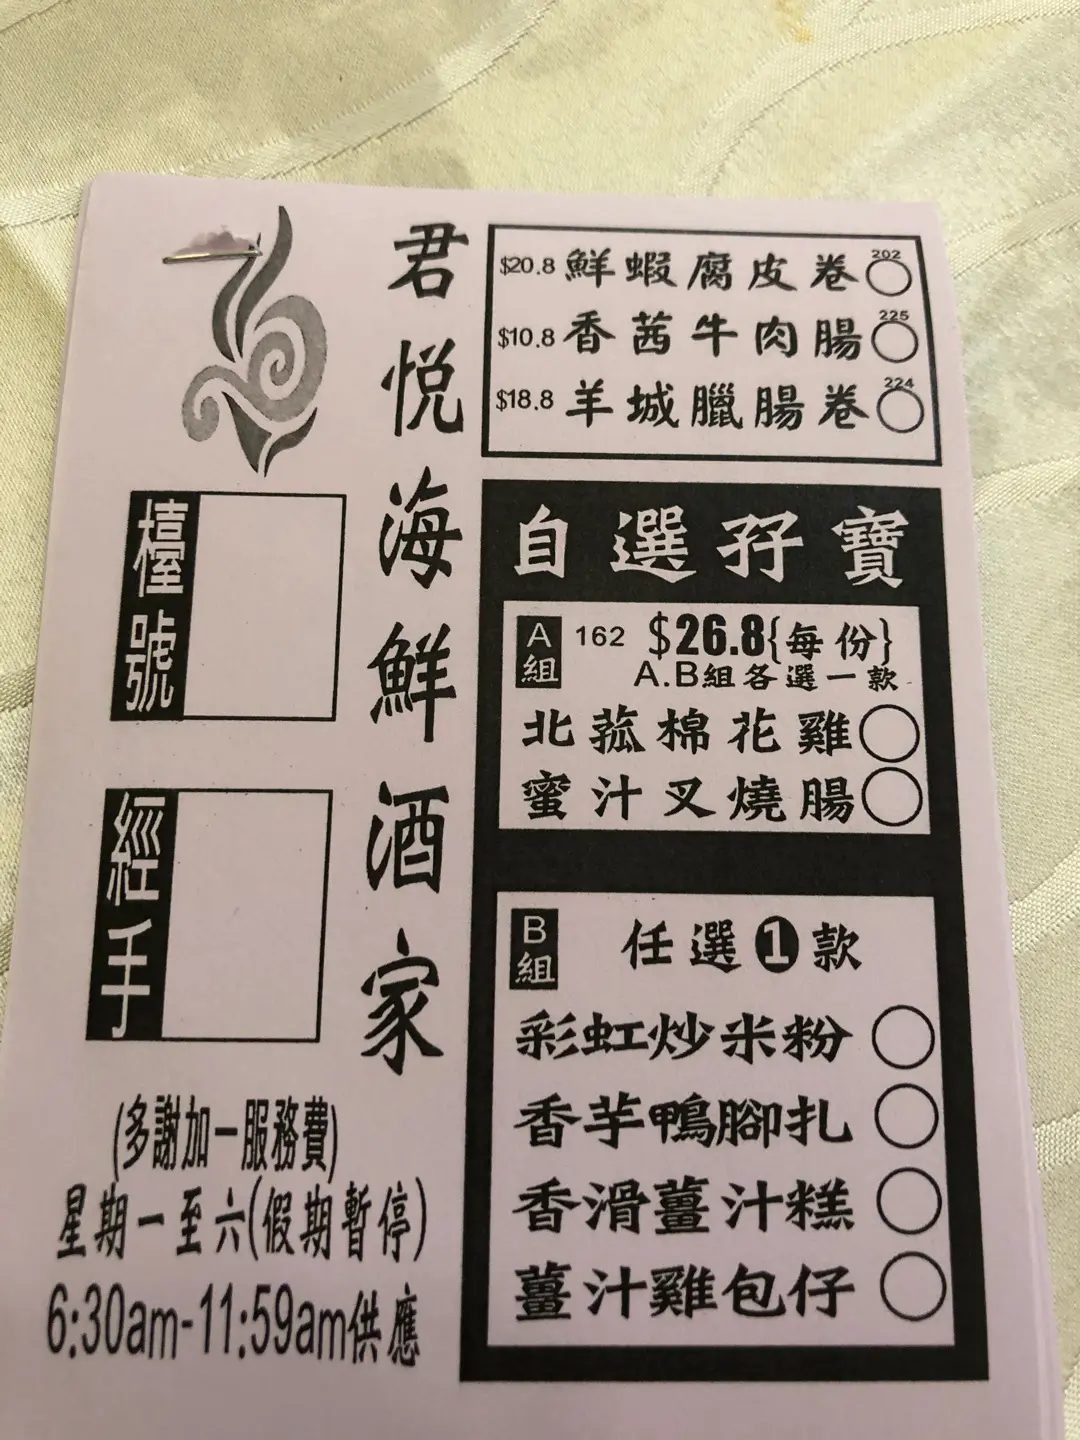 君悦海鮮酒家
檯號
經手
(多謝加一服務費)
星期一至六(假期暫停)
6:30am-11:59am供應
$20.8 鮮蝦腐皮卷 202
$10.8 香茜牛肉腸 225
$18.8 羊城臘腸卷 224
自選孖寶
A組 162 $26.8{每份}
A.B組各選一款
北菰棉花雞
蜜汁叉燒腸
B組 任選1款
彩虹炒米粉
香芋鴨腳扎
香滑薑汁糕
薑汁雞包仔